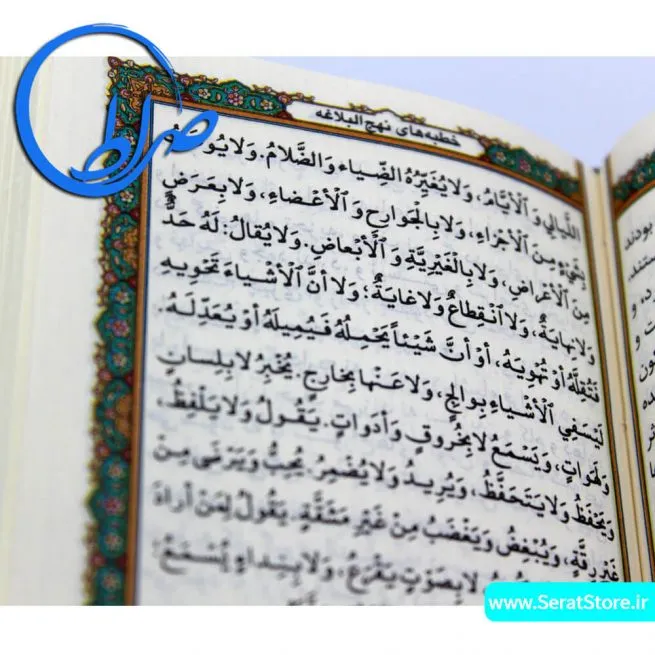 صراط
خطبه‌های نهج البلاغه
اللَّيالِي وَ الْأَيَّامُ، وَلا يُغَيِّرُهُ الضِّياء وَ الضَّلامُ. وَلا
بِشَيْءٍ مِنَ الْأَجْزاءِ، وَلا بِالْجَوارِحِ وَ الْأَعْضاءِ، وَلا بِعَرَضٍ
مِنَ الْأَعْراضِ، وَلا بِالْغَيْرِيَّةِ وَ الْأَبْعاضِ. وَلا يُقالُ: لَهُ حَدٌّ
وَلا نِهايَةٌ، وَلا انْقِطاعٌ وَلا غايَةٌ؛ وَلا أَنَّ الْأَشْياءَ تَحْوِيهِ
فَتُقِلَّهُ أَوْ تُهْوِيَهُ، أَوْ أَنَّ شَيْئاً يَحْمِلُهُ فَيُمِيلَهُ أَوْ يُعَدِّلَهُ.
لَيْسَ فِي الْأَشْياءِ بِوالِجٍ، وَلا عَنْها بِخارِجٍ. يُخْبِرُ لا بِلِسانٍ
وَلَهَواتٍ، وَيَسْمَعُ لا بِخُرُوقٍ وَأَدَواتٍ. يَقُولُ وَلا يَلْفِظُ،
وَيَحْفَظُ وَلا يَتَحَفَّظُ، وَيُرِيدُ وَلا يُضْمِرُ. يُحِبُّ وَيَرْضَى مِنْ
غَيْرِ رِقَّةٍ، وَيُبْغِضُ وَيَغْضَبُ مِنْ غَيْرِ مَشَقَّةٍ. يَقُولُ لِمَنْ أَرادَ
لا بِصَوْتٍ يَقْرَعُ، وَلا بِنِداءٍ يُسْمَعُ؛
بودند
www.SeratStore.ir